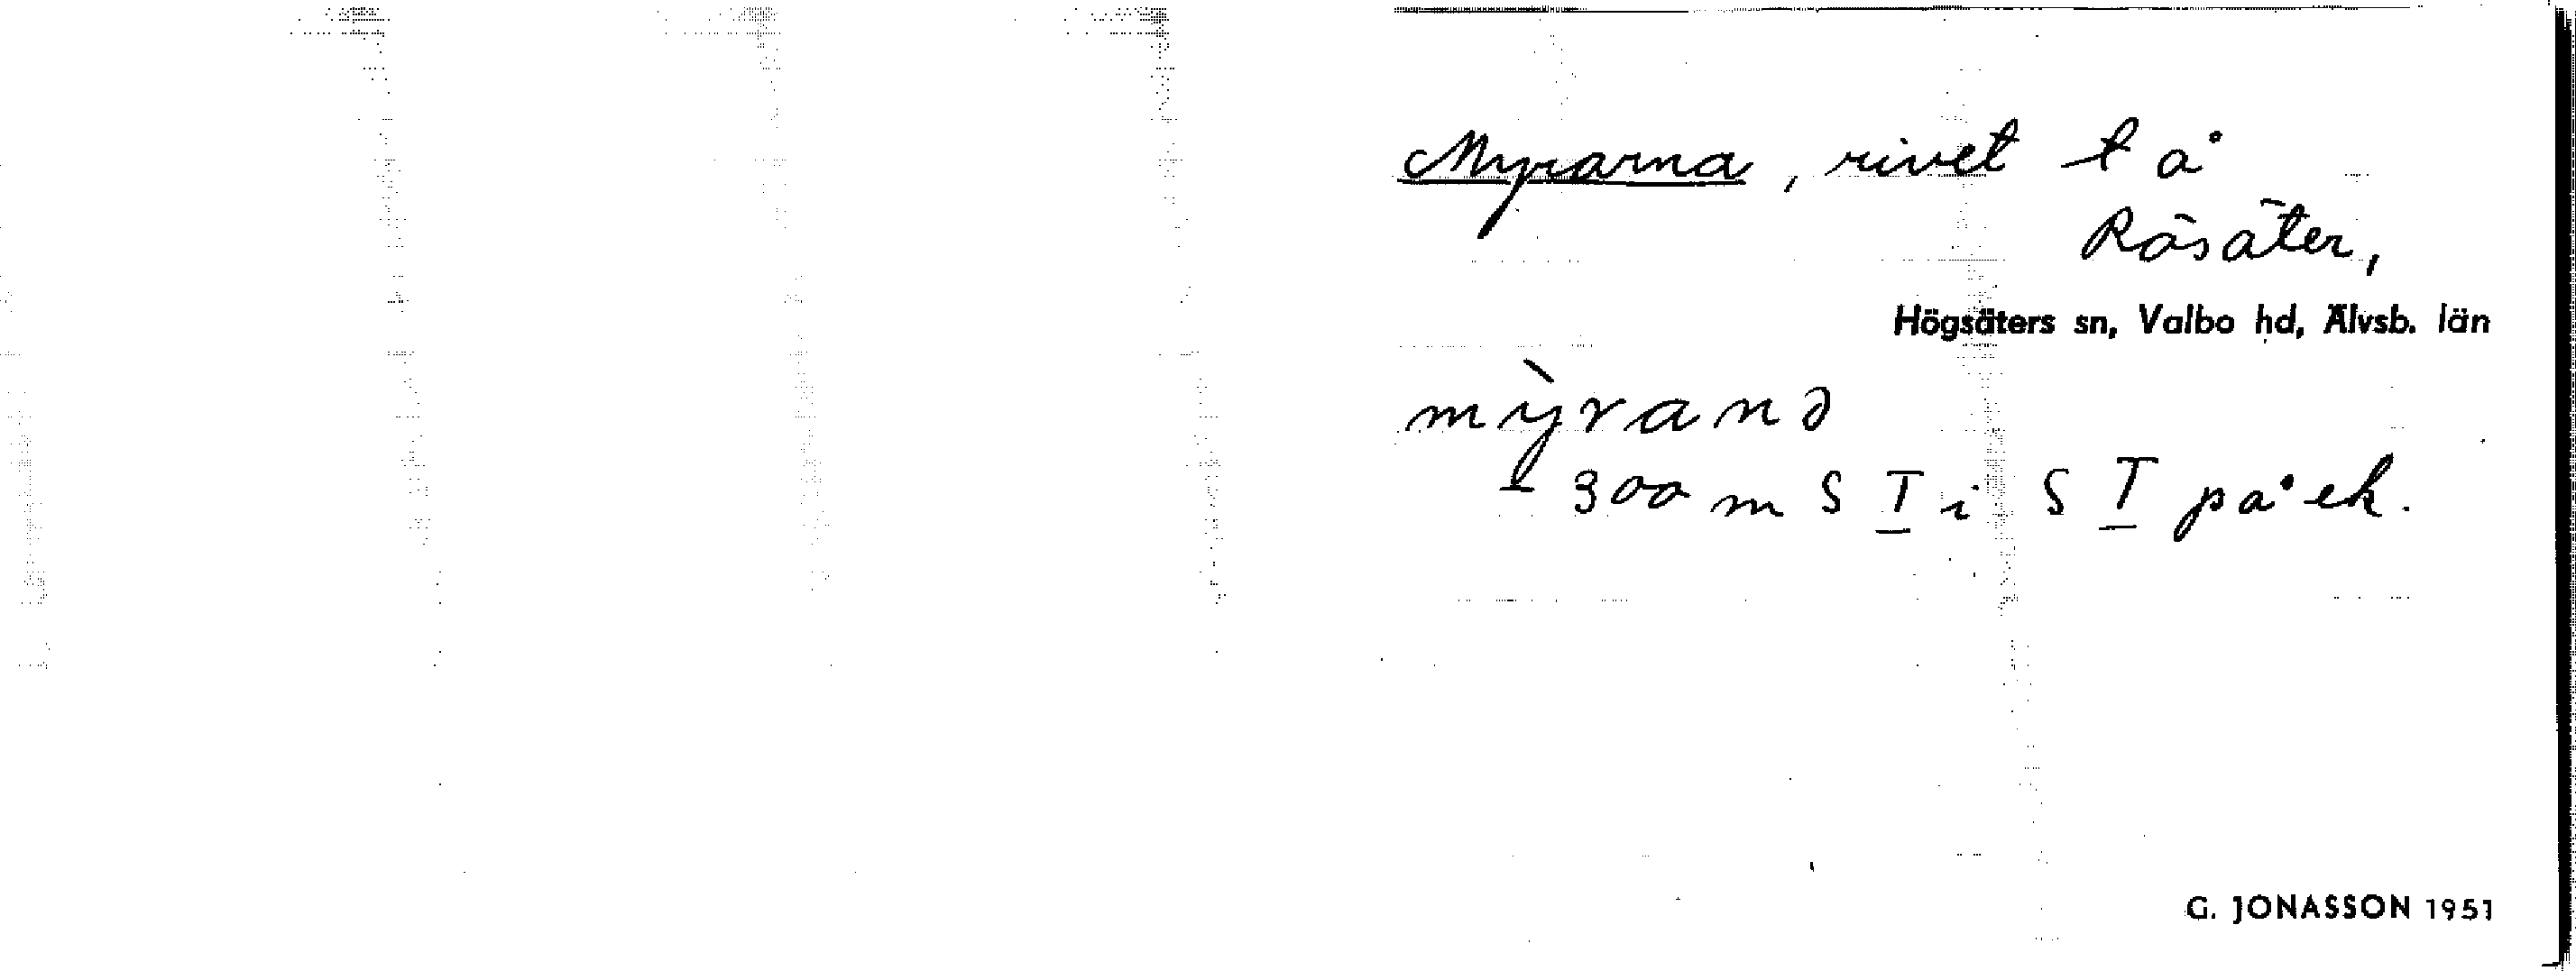 Myrarna, rivet t å
Rösäter,
Högsäters sn, Valbo hd, Älvsb. län
mỳrană
- 300 m S I i S I på ek.
G. JONASSON 1951